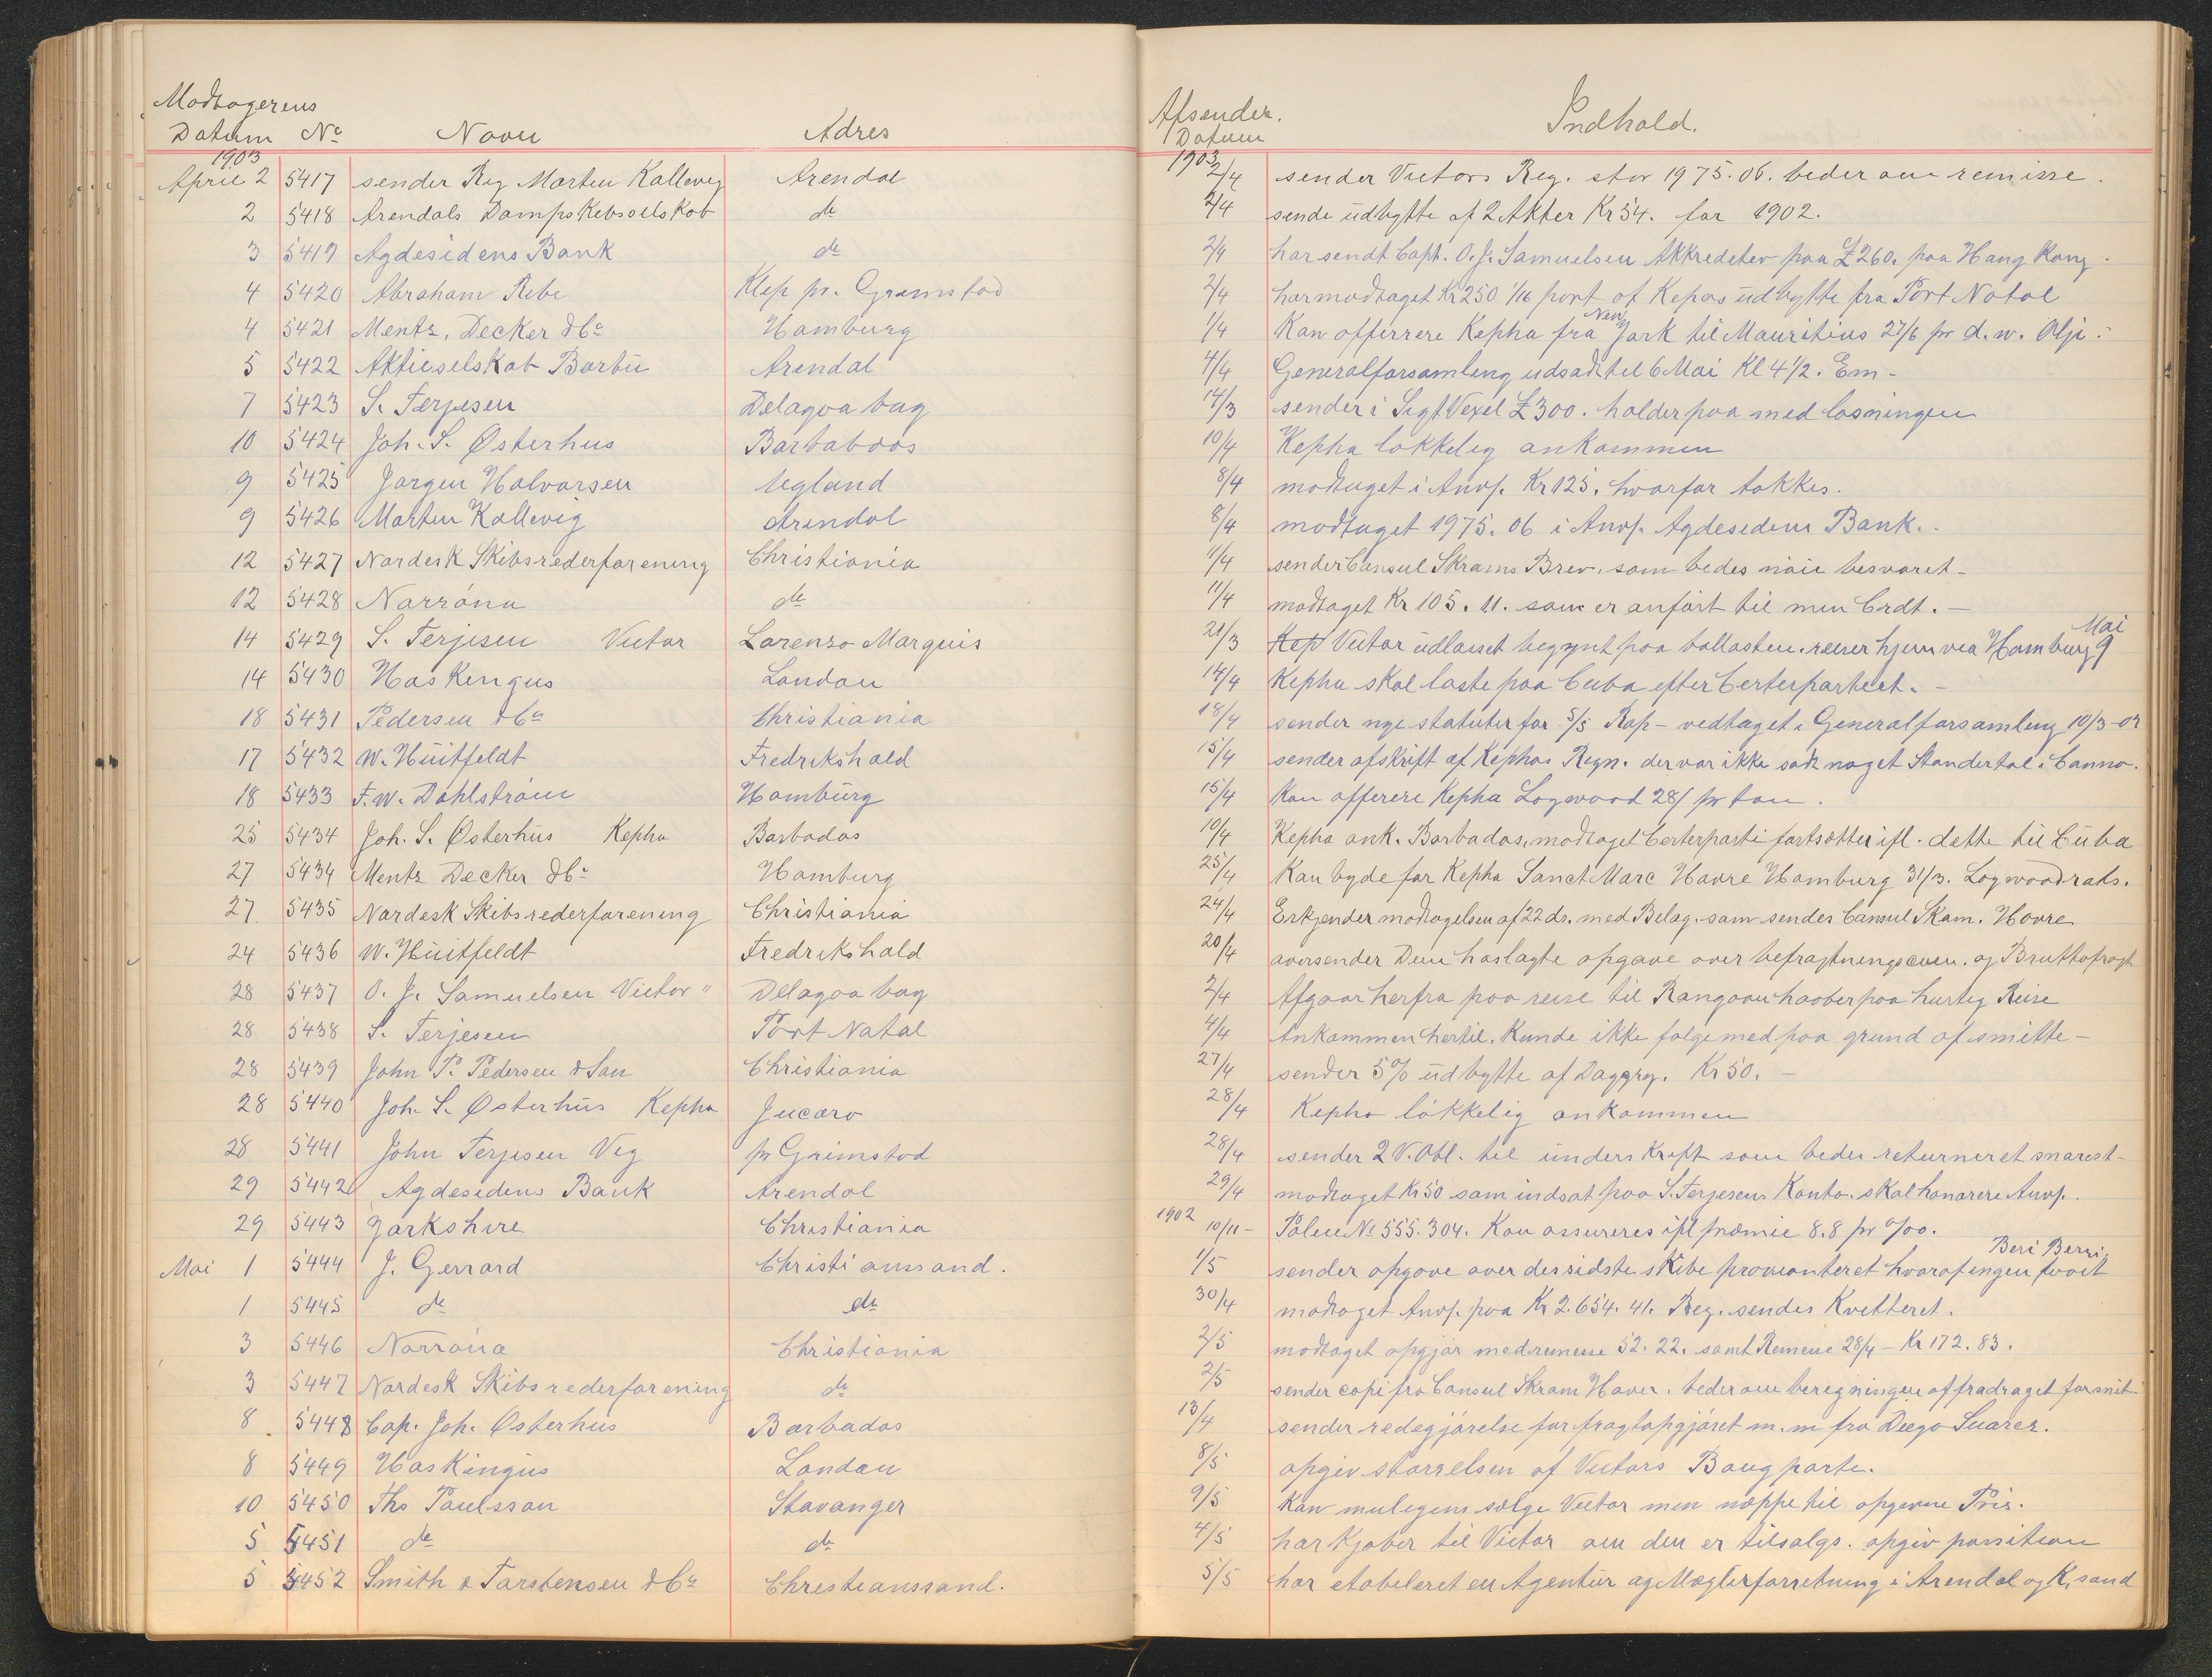 Modtagerens
Datum No Navn Adres
1903
April 2 5417 sender Reg Morten Kallevig Arendal
2 5418 Arendals Dampskibsselskab do
3 5419 Agdesidens Bank do
4 5420 Abraham Ribe Klep pr. Grimstad
4 5421 Mentz, Decker & Co Hamburg
5 5422 Aktieselskab Barbu Arendal
7 5423 S. Terjesen Delagoa bay
10 5424 Joh. S. Østerhus Barbadoos
9 5425 Jørgen Halvorsen Ugland
9 5426 Morten Kallevig Arendal
12 5427 Nordesk Skibsrederforening Christiania
12 5428 Norröna do
14 5429 S. Terjesen Victor Lorenzo Marquis
14 5430 Hoskengus London
18 5431 Pedersen & Co Christiania
17 5432 W. Hüitfeldt Fredrikshald
18 5433 F. W. Dahlström Hamburg
25 5434 Joh. S. Østerhus Kepha Barbados
27 5434 Mentz Decker & Co Hamburg
27 5435 Nordesk Skibsrederforening Christiania
24 5436 W. Hüitfeldt Fredrikshald
28 5437 O. J. Samuelsen Victor " Delagoa bay
28 5438 S. Terjesen Port Natal
28 5439 John P. Pedersen & Søn Christiania
28 5440 Joh. S. Østerhus Kepha Jucaro
28 5441 John Terjesen Vig pr Grimstad
29 5442 Agdesidens Bank Arendal
29 5443 Yorkshire Christiania
Mai 1 5444 J. Gerrard Christiansand.
1 5445 do do
3 5446 Norröna Christiania
3 5447 Nordesk Skibsrederforening do
8 5448 Cap. Joh. Østerhus Barbados
8 5449 Hoskingus London
10 5450 Ths Paulsson Stavanger
5 5451 do do
5 5452 Smith & Torstensen & Co Christianssand.
Afsender.
Datum Indhold.
1903
2/4 sender Victors Reg. stor 1975.06. beder om remisse.
2/4 sende üdbytte af 2 Akter Kr 54. for 1902.
2/4 har sendt Capt. O. J. Samuelsen Akkreditev paa £260. paa Hang Kong.
2/4 har modtaget Kr 250 1/16 part af Kepas üdbytte fra Port Natal
1/4 Kan offerrere Kepha fra New York til Mauritius 27/6 pr d.w. Olje.
4/4 Generalforsamling udsadt til 6 Mai Kl 4 1/2. Em-
14/3 sender i Sigt Vexel £300. holder paa med losningen
10/4 Kepha løkkelig ankommen
8/4 modtaget i Anvp. Kr 125. hvorfor takkes.
8/4 modtaget 1975.06 i Anvp. Agdesidens Bank.
11/4 sender Consul Skrams Brev, som bedes nöie besvaret-
11/4 modtaget Kr 105.11. som er anført til min Crdt.-
21/3 Kep Victor üdlosset begynt paa ballasten. reiser hjem via Hamburg Mai 9
14/4 Kepha skal laste paa Cuba efter Certepartiet.-
18/4 sender nye statuter for S/S Rap- vedtaget i Generalforsamling 10/3-02
15/4 sender afskrift af Kephas Regn. der var ikke sadt noget Standertal i Canno.
15/4 Kan offerere Kepha Logwood 28/ pr ton.
10/4 Kepha ank. Barbados, modtaget Certerparti fortsætter ifl. dette til Cüba
25/4 Kan byde for Kepha Sanct Marc Havre Hamburg 31/3. Logwood rats.
24/4 Erkjender modtagelsen af 22 ds. med Belag. som sendes Consul Skam. Havre
20/4 aversender Dem hoslagte opgave over befragtningscom. og Bruttofragt
2/4 Afgaar herfra paa reise til Rangoon haaber paa hurtig Reise
4/4 Ankommen hertil. Kunde ikke følge med paa grund af smitte-
27/4 sender 5% üdbytte af Daggry. Kr 50.-
28/4 Kepha lökkelig ankommen
28/4 sender 2 V. Obl. til ünderskrift som bedes returneret snarest-
29/4 modtaget Kr 50 som indsat paa S. Terjesens Konto. skal honorere Anvp.
1902
10/11- Police No 555.304. Kan assureres ifl præmie 8.8 pr %oo.
1/5 sender opgave over des sidste skibe provianteret hvoraf ingen havt Beri Berri.
30/4 modtaget Anvp. paa Kr 2.654.41. Reg. sendes Kvitteret.
2/5 modtaget opgjør med remesse 52.22. samt Remesse 28/4- Kr 172.83.
2/5 sender copi fra Consul Skram Haver, beder om beregningen af fradraget for snit
13/4 sender redegjørelse for fragtopgjøret m.m fra Diego Suarez.
8/5 opgiv størrelsen af Victors Baug porte.
9/5 Kan muligens sælge Victor men næppe til opgivne Pris.
4/5 har Kjøber til Victor om den er tilsalgs. opgiv possition
5/5 har etableret en Agentür og Mæglerforretning i Arendal og K,sand